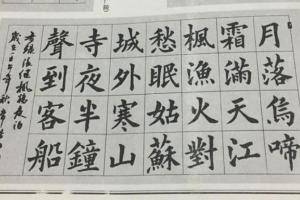 月落烏啼
霜滿天江
楓漁火對
愁眠姑蘇
城外寒山
寺夜半鐘
聲到客船
張繼楓橋夜泊